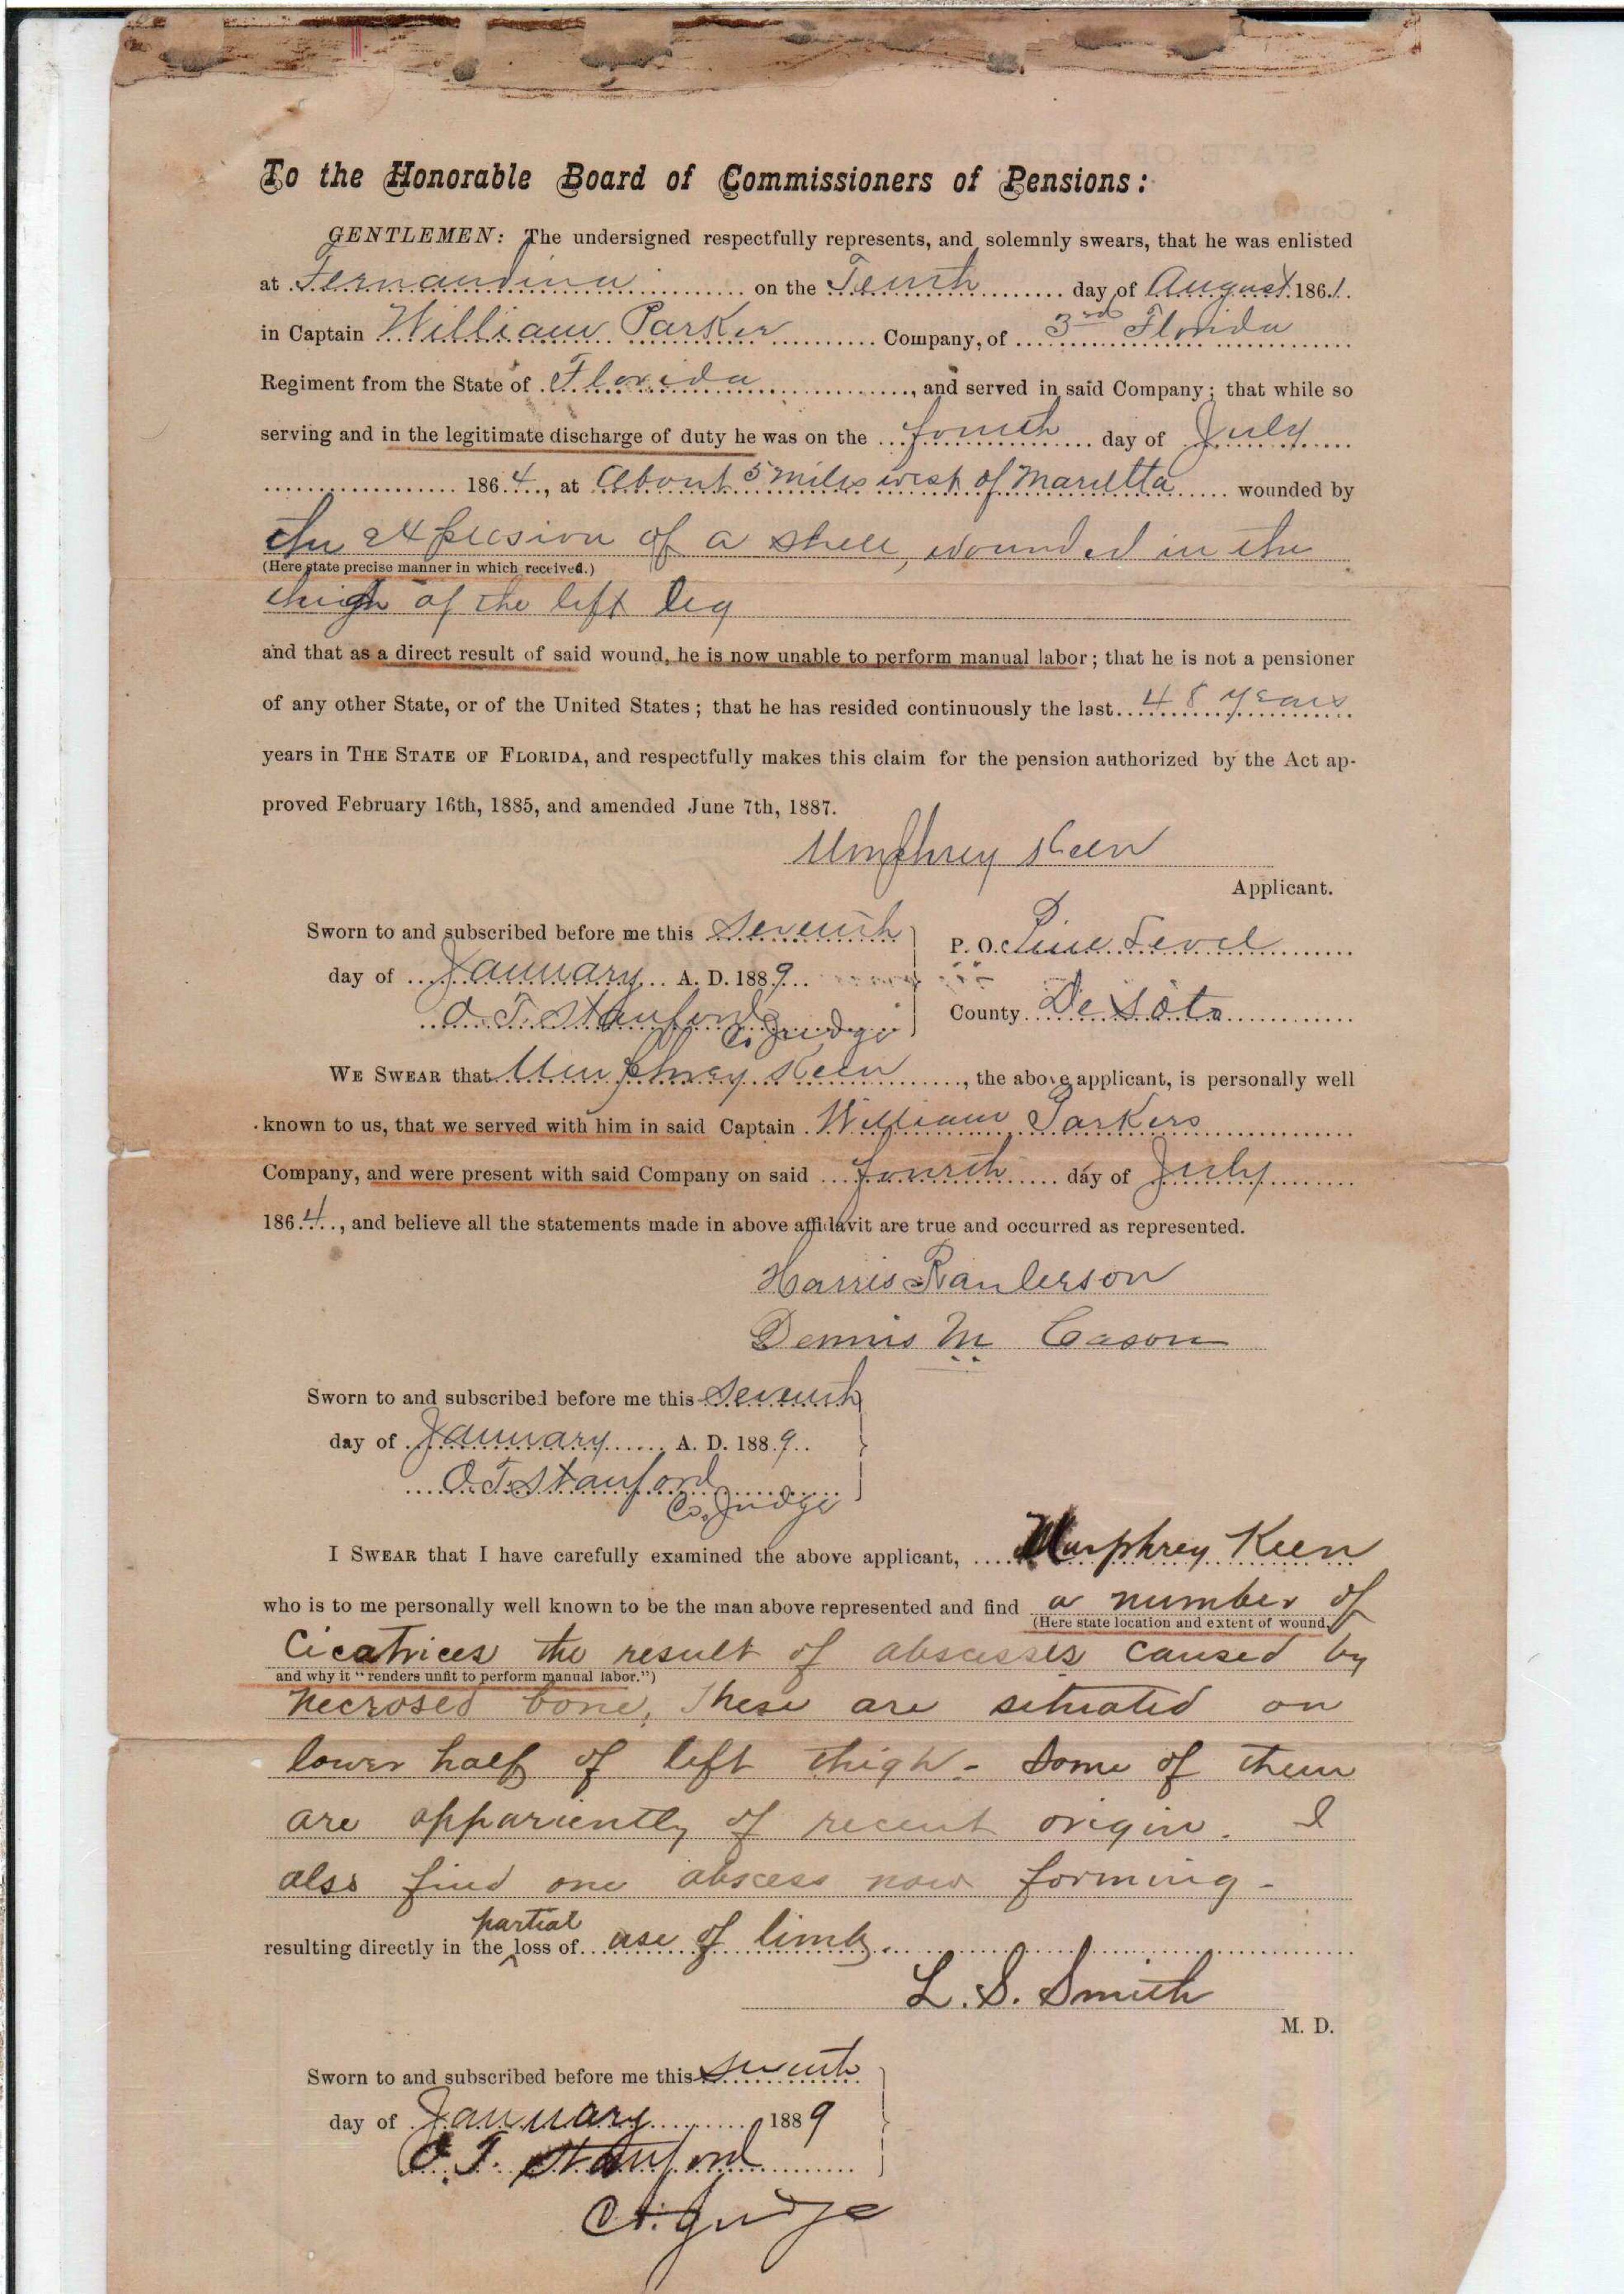 To the Honorable Board of Commissioners of Pensions:
GENTLEMEN: The undersigned respectfully represents, and solemnly swears, that he was enlisted
at Fernandina on the Tenth day of August 1861.
in Captain William Parker Company, of 3rd Florida
Regiment from the State of Florida, and served in said Company; that while so
serving and in the legitimate discharge of duty he was on the fourth day of July
1864, at About 5 miles west of Marietta wounded by
the explosion of a shell, wounded in the
(Here state precise manner in which received.)
thigh of the left leg
and that as a direct result of said wound, he is now unable to perform manual labor; that he is not a pensioner
of any other State, or of the United States; that he has resided continuously the last 48 years
years in THE STATE OF FLORIDA, and respectfully makes this claim for the pension authorized by the Act ap-
proved February 16th, 1885, and amended June 7th, 1887.
Umphrey Keen
Applicant.
Sworn to and subscribed before me this Seventh
day of January A. D. 1889
O. T. Stanford
Co. Judge
P. O. Pine Level
County De Soto
WE SWEAR that Umphrey Keen, the above applicant, is personally well
known to us, that we served with him in said Captain William Parkers
Company, and were present with said Company on said fourth day of July
1864, and believe all the statements made in above affidavit are true and occurred as represented.
Harris
Dennis M Cason
Sworn to and subscribed before me this Seventh
day of January A. D. 1889.
O. T. Stanford
Co. Judge
I SWEAR that I have carefully examined the above applicant, Umphrey Keen
who is to me personally well known to be the man above represented and find a number of
(Here state location and extent of wound,
Cicatrices the result of abscesses caused by
and why it "renders unfit to perform manual labor.")
necrosed bone, These are situated on
lower half of left thigh - Some of them
are appariently of recent origin. I
also find one abscess now forming -
partial
resulting directly in the ^ loss of use of limb.
L. S. Smith
M. D.
Sworn to and subscribed before me this seventh
day of January 1889
O. T. Stanford
Co. Judge